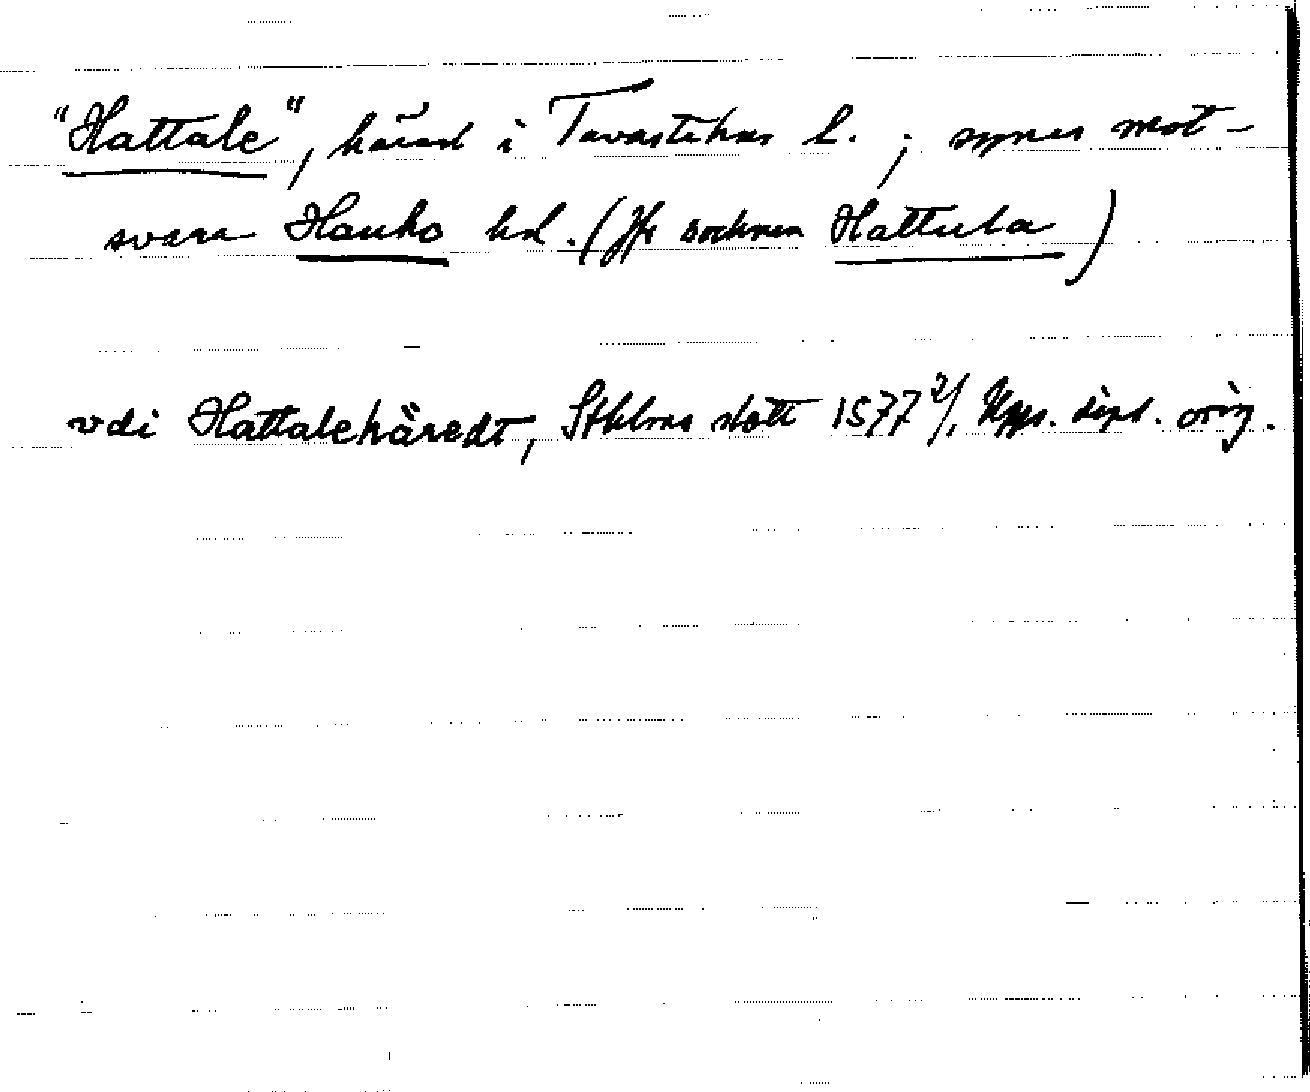 "Hattale", härad i Tavastehus l.; synes mot-
svara Hauho hd. (Jfr socknen Hattula)
vdi Hattalehäredt, Sthlms slott 1577 2/1. Upps. dipl. orig.